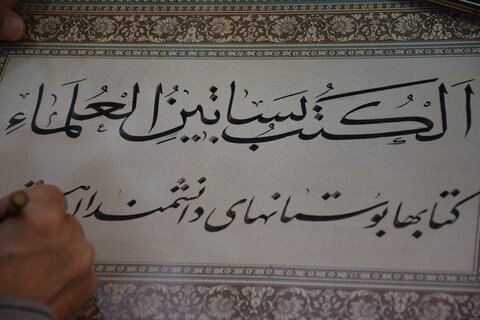 اَلْكُتُبُ بَساتينُ الْعُلَماءِ
کتابها بوستانهای دانشمندان است